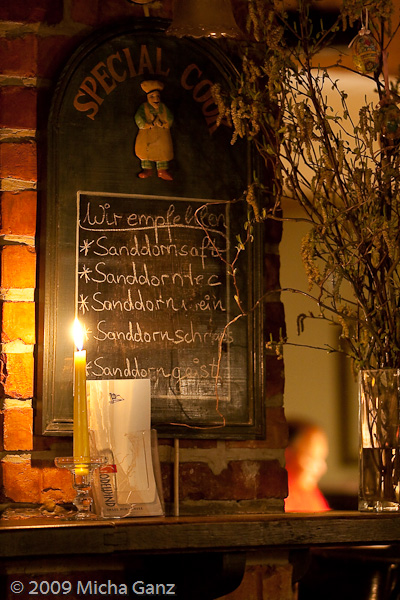 SPECIAL COOK
Wir empfehlen
*Sanddornsaft
*Sanddorntee
*Sanddornwein
*Sanddornschnaps
*Sanddorngeist
© 2009 Micha Ganz